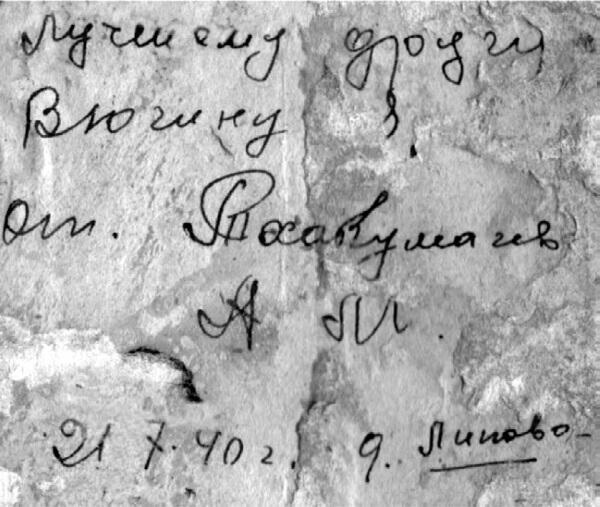 Лучшему другу
Вьюгину З.
от. Тхакумачев
А М.
21 7.40 г. д. Липово